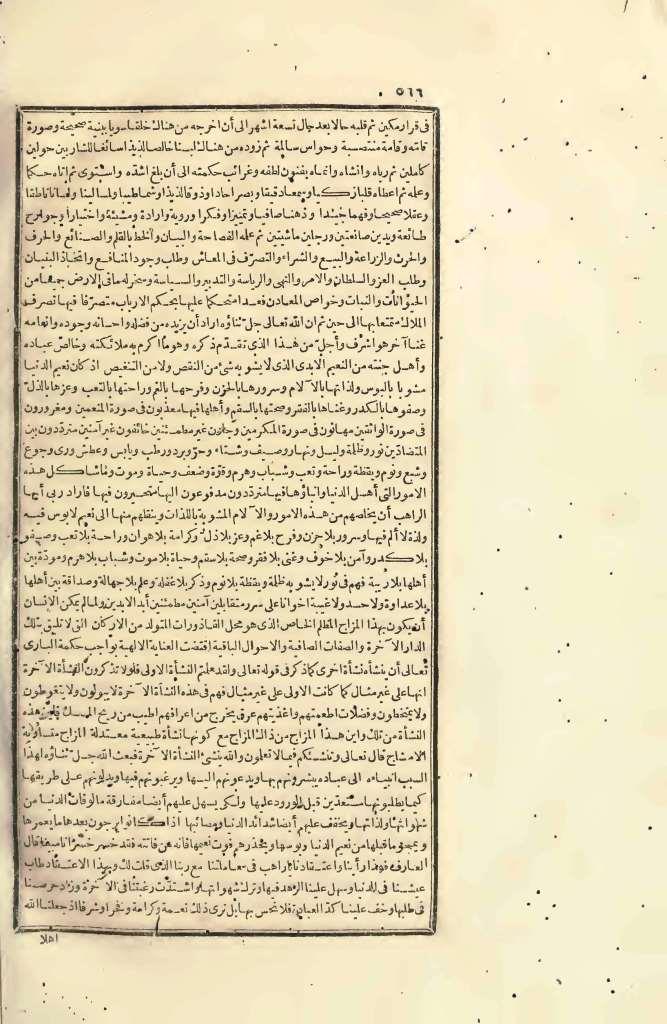 ٥٦٦
فى قرار مكين ثم قلبه حالا بعد حال تسعة أشهر الى أن اخرجه من هناك خلقا سويا ببنية صحيحة وصورة
تامة وقامة منتصبة وحواس سالمة ثم زوده من هناك لبنا خالصا لذيذا سائغا للشاربين حولين
كاملين ثم رباه وانشاه وانماه بفنون لطفه وغرائب حكمته الى أن بلغ اشده واستوى ثم آتاه حكما
وعلما ثم اعطاه قلبا زكيا وسمعا دقيقا وبصرا حادا وذوقا لذيذا وشما طيبا ولمسا لينا ولسانا ناطقا
وعقلا صحيحا وفهما جيدا وذهنا صافيا وتمييزا وفكرا وروية وارادة ومشيئة واختيارا وجوارح
طائعة ويدين صانعتين ورجلين ماشيتين ثم علمه الفصاحة والبيان والخط بالقلم والصنائع والحرف
والحرث والزراعة والبيع والشراء والتصرف فى المعاش وطلب وجود المنافع واتخاذ البنيان
وطلب العز والسلطان والامر والنهى والرياسة والتدبير والسياسة وسخر له ما فى الارض جميعا من
الحيوانات والنبات وخواص المعادن فغدا متحكما عليها بحكم الارباب متصرفا فيها تصرف
الملاك متمتعا بها الى حين ثم ان الله تعالى جل ثناؤه اراد أن يزيده من فضله واحسانه وجوده وانعامه
غنا آخر هو اشرف وأجل من هذا الذى تقدم ذكره وهو ما اكرم به ملائكته وخالص عباده
وأهل جنته من النعيم الابدى الذى لا يشوبه شئ من النقص ولا من التنغيص اذ كان نعيم الدنيا
مشوبا بالبوس ولذاتها بالآلام وسرورها بالحزن وفرحها بالغم وراحتها بالتعب وعزها بالذل
وصفوها بالكدر وغناها بالفقر وصحتها بالسقم وأهلها فيها معذبون فى صورة المنعمين ومغرورون
فى صورة الواثقين مهانون فى صورة المكرمين وجلون غير مطمئنين خائفون غير آمنين مترددون بين
المتضادين نور وظلمة وليل ونهار وصيف وشتاء وحر وبرد ورطب ويابس وعطش ورى وجوع
وشبع ونوم ويقظة وراحة وتعب وشباب وهرم وقوة وضعف وحياة وموت وما شاكل هذه
الامور التى أهل الدنيا وابناؤها فيها مترددون مدفوعون اليها متحيرون فيها فاراد ربى أيها
الراهب أن يخلصهم من هذه الامور والآلام المشوبة باللذات وينقلهم منها الى نعيم لا بوس فيه
ولذة لا ألم فيها وسرور بلا حزن وفرح بلا غم وعز بلا ذل وكرامة بلا هوان وراحة بلا تعب وصفو
بلا كدر وأمن بلا خوف وغنى بلا فقر وصحة بلا سقم وحياة بلا موت وشباب بلا هرم ومودة بين
أهلها بلا ريبة فهم فى نور لا يشوبه ظلمة ويقظة بلا نوم وذكر بلا غفلة وعلم بلا جهالة وصداقة بين أهلها
بلا عداوة ولا حسد ولا غيبة اخوانا على سرر متقابلين آمنين مطمئنين أبد الابدين ولما لم يمكن الانسان
أن يكون بهذا المزاج المظلم الخاص الذى هو محل القاذورات المتولد من الاركان التى لا تليق بتلك
الدار الآخرة والصفات الصافية والاحوال الباقية اقتضت العناية الالهية بواجب حكمة البارى
تعالى أن ينشأه نشأة اخرى كما ذكر فى قوله تعالى ولقد علمتم النشأة الاولى فلولا تذكرون النشأة الآخرة
انها على غير مثال كما كانت الاولى على غير مثال فهم فى هذه النشأة الآخرة لا يبولون ولا يتغوطون
ولا يتمخطون وفضلات اطعمتهم واغذيتهم عرق يخرج من اعرافهم اطيب من ريح المسك فاين هذه
النشأة من تلك واين هذا المزاج من ذاك المزاج مع كونها نشأة طبيعية معتدلة المزاج متساوية
الامشاج قال تعالى وننشئكم فيما لا تعلمون والله ينشئ النشأة الآخرة فبعث الله جل ثناؤه لهذا
السبب انبياءه الى عباده يبشرونهم بها ويدعونهم اليها ويرغبونهم فيها ويدلونهم على طريقها
كيما يطلبونها مستعدين قبل الورود عليها ولكى يسهل عليهم أيضا مفارقة مألوفات الدنيا من
شهواتها ولذاتها ويخفف عليهم أيضا شدائد الدنيا ومصائبها اذا كانوا يرجون بعدها ما يغمرها
ويمحو ما قبلها من نعيم الدنيا وبوسها ويحذرهم فوت نعيمها فانه من فاتته فقد خسر خسرانا مبينا قال
العارف فهذا رأينا واعتقادنا يا راهب فى معاملتنا مع ربنا الذى قلت لك وبهذا الاعتقاد طاب
عيشنا فى الدنيا وسهل علينا الزهد فيها وترك شهواتها واشتدت رغبتنا فى الآخرة وزاد حرصنا
فى طلبها وخف علينا كد العبادة فلا نحس بها بل نرى ذلك نعمة وكرامة وفخرا وشرفا اذ جعلنا الله
اهلا